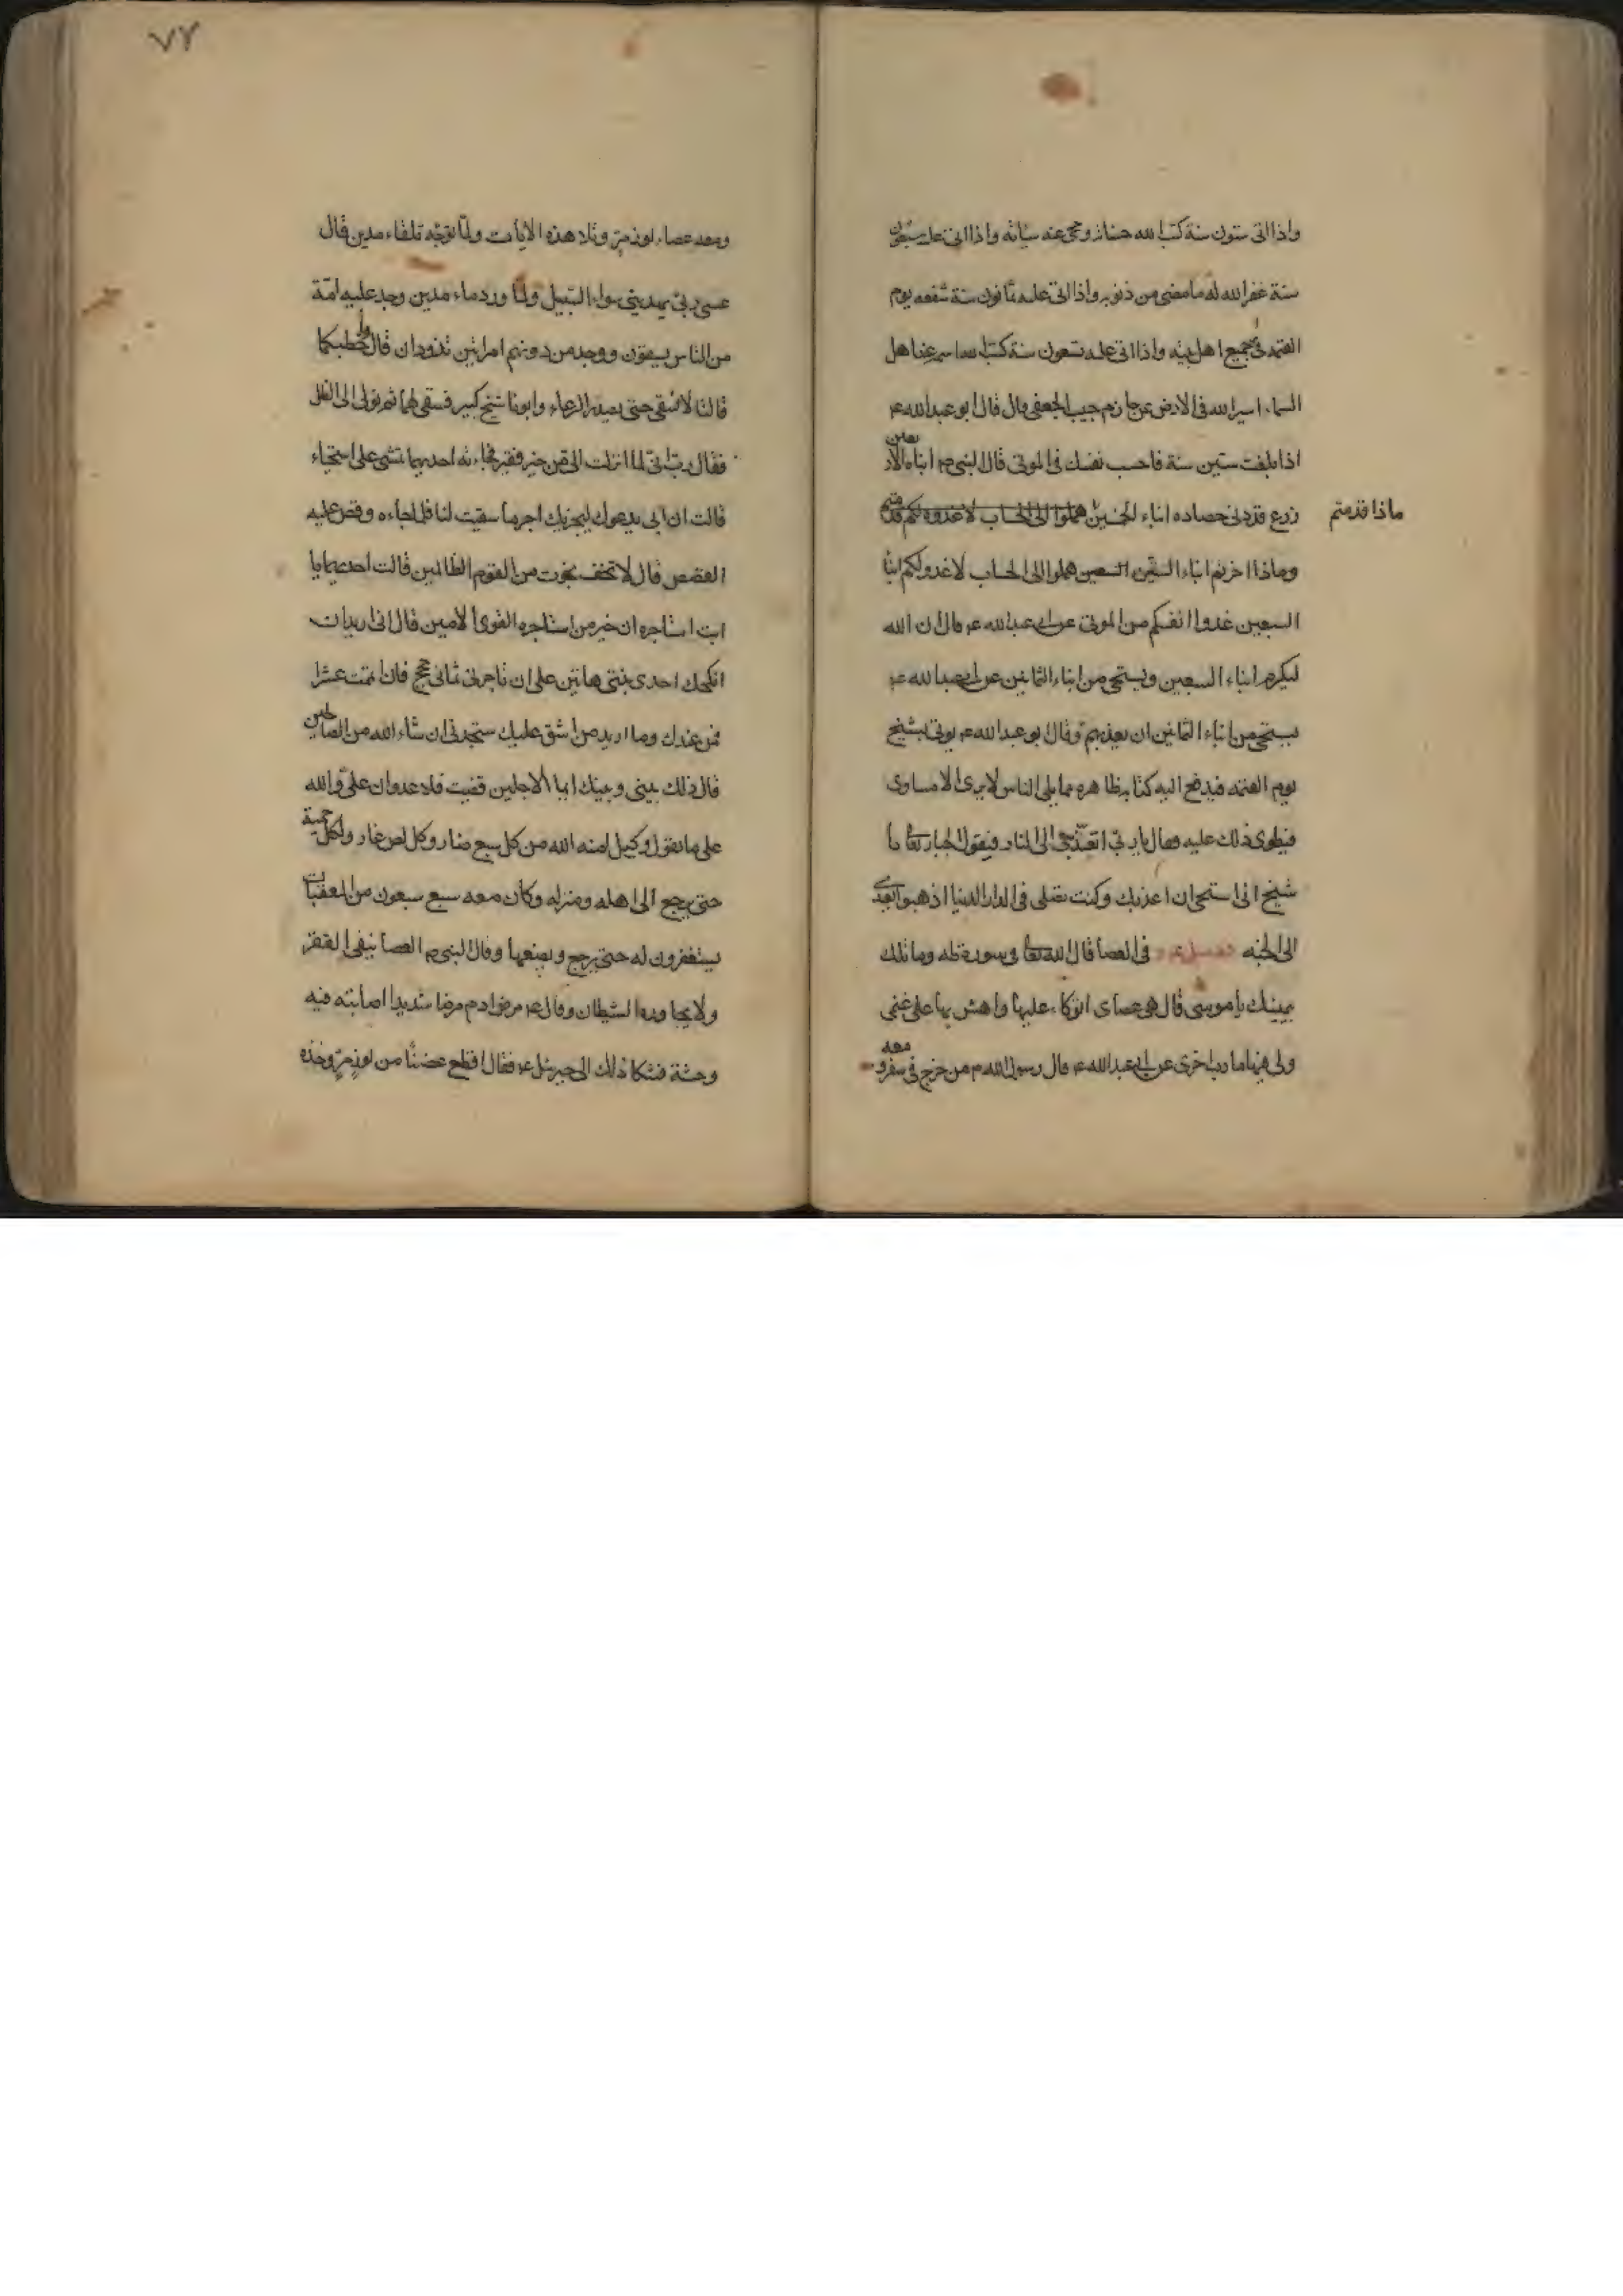 واذا اتى ستون سنة كتب الله حسناته ومحى عنه سيأته واذا اتى عليه سبعون
سنة غفر الله له ما مضى من ذنوبه واذا اتى عليه ثمانون سنة شفعه يوم
القيمة في جميع اهل بيته واذا اتى عليه تسعون سنة كتب اسمه عند اهل
السماء اسير الله فى الارض عن حازم حبيب الجعفى قال قال ابو عبدالله ع
اذا بلغت ستين سنة فاحسب نفسك فى الموتى قال النبى ص ابناء الاربعين
زرع قد دنى حصاده ابناء الخمسين هلموا الى الحساب لا عذر لكم قدمتم
ماذا قدمتم
وماذا اخرتم ابناء الستين السبعين هلموا الى الحساب لا عذر لكم ابناء
السبعين عدوا انفسكم من الموتى عن ابى عبدالله ع قال ان الله
ليكرم ابناء السبعين ويستحى من ابناء الثمانين عن ابى عبدالله ع
يستحى من ابناء الثمانين ان يعذبهم وقال ابو عبدالله ع يوتى بشيخ
يوم القيمه فيدفع اليه كتابه ظاهره مما يلى الناس لا يرى الا مساوى
فيطوى ذلك عليه فقال يا رب اتعذبنى الى النار فيقول الجبار تعالى يا
شيخ انى استحى ان اعذبك وكنت تصلى فى الدار الدنيا اذهبوا بعبدى
الى الجنه فى العصا قال الله تعالى فى سورة طه وما تلك
بيمينك يا موسى قال هى عصاى اتوكاء عليها واهش بها على غنمى
ولى فيها مارب اخرى عن ابى عبدالله ع قال رسول الله ص من خرج فى سفر ومعه
٧٢
ومعه عصاء لوز مرّ وتلا هذه الايات ولمّا توجّه تلقاء مدين قال
عسى ربى ان يهدينى سواء السّبيل ولمّا ورد ماء مدين وجد عليه امّة
من الناس يسقون ووجد من دونهم امراتين تذودان قال ما خطبكما
قالتا لا نسقى حتى يصدر الرعاء وابونا شيخ كبير فسقى لهما ثم تولى الى الظل
فقال ربّ انّى لما انزلت الىّ من خير فقير فجاءته احديهما تمشى على استحياء
قالت ان ابى يدعوك ليجزيك اجر ما سقيت لنا فلما جاءه وقص عليه
القصص قال لا تخف نجوت من القوم الظالمين قالت احديهما يا
ابت استاجره ان خير من استاجره القوى الامين قال انى اريد ان
انكحك احدى بنتى هاتين على ان تاجرنى ثمانى حجج فان اتممت عشرا
فمن عندك وما اريد من اشق عليك ستجدنى ان شاء الله من الصالحين
قال ذلك بينى وبينك ايما الاجلين قضيت فلا عدوان علىّ والله
على ما نقول وكيل امنه الله من كل سبع ضار وكل لص غار وكل حمية
حتى يرجع الى اهله ومنزله وكان معه سبع سبعون من المعقبات
يستغفرون له حتى يرجع ويضعها وقال النبى ص العصا ينفى الفقر
ولا يجاوره الشيطان وقال ع مرض ادم مرضا شديدا اصابته فيه
وحشة فشكا ذلك الى جبرئيل ع فقال اقطع غصنا من لوز مرّ وخذه